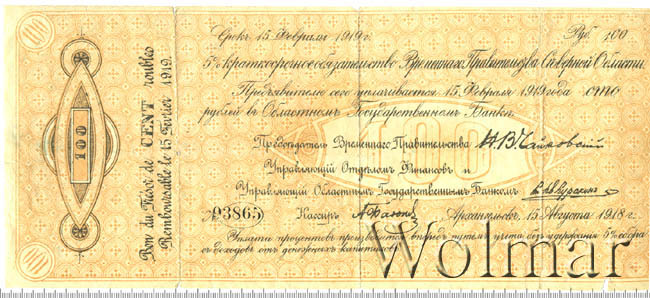 100
Срокъ 15 Февраля 1919 г. Руб. 100
5% краткосрочное обязательство Временнаго Правительства Сѣверной Области.
Предъявителю сего уплачивается 15 Февраля 1919 года сто
рублей въ Областномъ Государственномъ Банкѣ.
Предсѣдатель Временнаго Правительства Н. В. Чайковскій
Управляющій Отдѣломъ Финансовъ и
Управляющій Областнымъ Государственнымъ Банкомъ
№ 93865 Кассиръ Архангельскъ, 15 Августа 1918 г.
Уплата процентовъ производится впередъ путемъ учета съ удержаніемъ 5% сбора
съ доходовъ отъ денежныхъ капиталовъ.
Bon du Trésor de CENT roubles
Remboursable le 15 Février 1919.
100
100
100
Wolmar